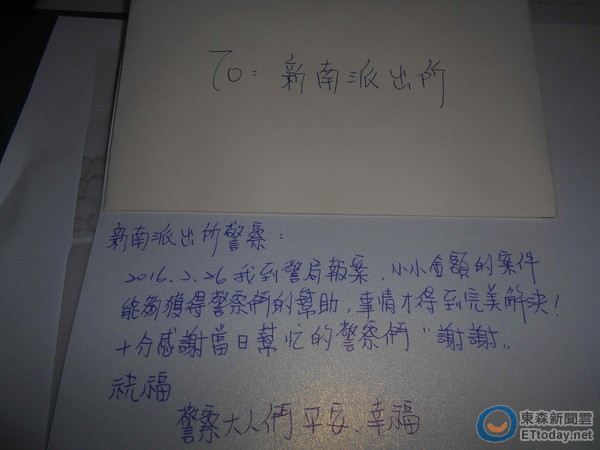 To: 新南派出所
新南派出所警察:
2016.2.26 我到警局報案,小小金額的案件
能夠獲得警察們的幫助,事情才得到完美解決!
十分感謝當日幫忙的警察們“謝謝„
祝福
警察大人們平安、幸福
東森新聞雲
ETtoday.net